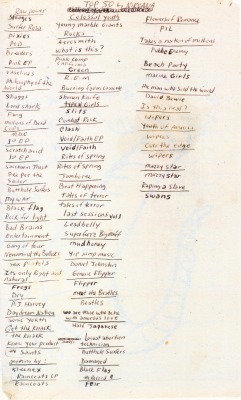 TOP 50 by NIRVANA
Raw power
Stooges
Surfer Rosa
Pixies
Pod
Breeders
Pink EP
Philosophy of the
world
Shaggs
Land shark
Fang
millions of Dead
Cops
1st EP
Scratch acid
1st EP
Saccharine Trust
Pee Pee the
Sailor
Butthole Surfers
my war
Black Flag
Rock for light
Bad Brains
Entertainment
Gang of four
Nevermind the Bollocks
Sex Pistols
Its only right and
natural
Frogs
Dry
P.J. Harvey
Daydream Nation
Sonic Youth
Get the Knack
the Knack
Know your product
the Saints
anything by:
Kleenex
Raincoats LP
Raincoats
Colossal youth
young marble Giants
Rocks
Aerosmith
what is this?
Punk comp
California
Green
R.E.M
Burning farm Cassette
Shonen Knife
Typical Girls
Slits
Combat Rock
Clash
Void/Faith EP
Void/Faith
Rites of Spring
Rites of Spring
Jamboree
Beat Happening
Tales of terror
Tales of terror
last sessions vol 1
Leadbelly
Superfuzz Bigmuff
mudhoney
Yip Jump music
Daniel Johnston
Generic Flipper
Flipper
meet the Beatles
Beatles
we are those who ache
with amorous love
Half Japanese
Locust abortion
technician
Butthole Surfers
Damaged
Black Flag
Fear
Flowers of Romance
PiL
Takes a nation of millions
Public Enemy
Beach Party
marine Girls
the man who Sold the world
David Bowie
Is this real?
wipers
Youth of America
wipers
Over the edge
wipers
mazzy star
mazzy star
Raping a slave
Swans